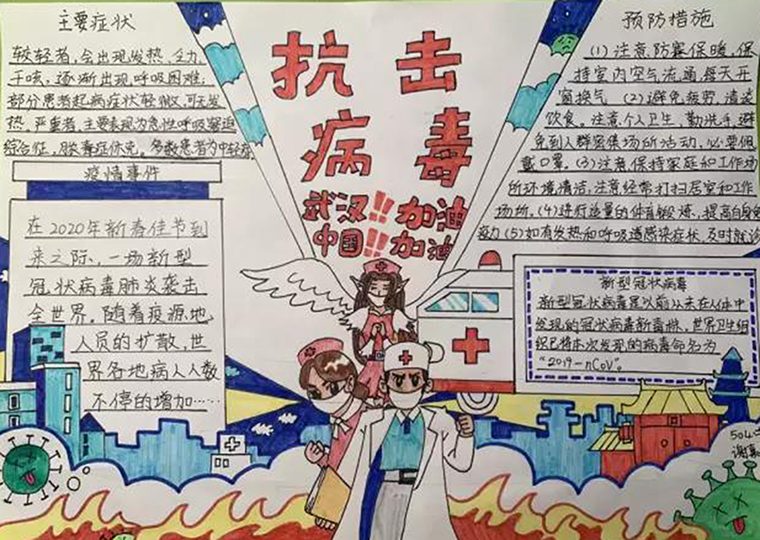 主要症状
较轻者,会出现发热、乏力、
干咳,逐渐出现呼吸困难;
部分患者起病症状轻微,可无发
热,严重者,主要表现为急性呼吸窘迫
综合征,脓毒症休克。多数患者为中轻症
疫情事件
在2020年新春佳节到
来之际、一场新型
冠状病毒肺炎袭击
全世界。随着疫源地
人员的扩散,世
界各地病人人数
不停的增加……
抗击
病毒
武汉!!加油
中国!!加油
预防措施
(1)注意防寒保暖,保
持室内空气流通每天开
窗换气 (2)避免疲劳,清淡
饮食。注意个人卫生,勤洗手,避
免到人群密集场所活动,必要佩
戴口罩。(3)注意保持家庭和工作场
所环境清洁,注意经常打扫居室和工作
场所。(4)进行适量的体育锻炼、提高自身免
疫力(5)如有发热和呼吸道感染症状,及时就诊
新型冠状病毒
新型冠状病毒是以前从未在人体中
发现的冠状病毒新毒株,世界卫生组
织已将本次发现的病毒命名为
“2019-nCoV”。
504
谢